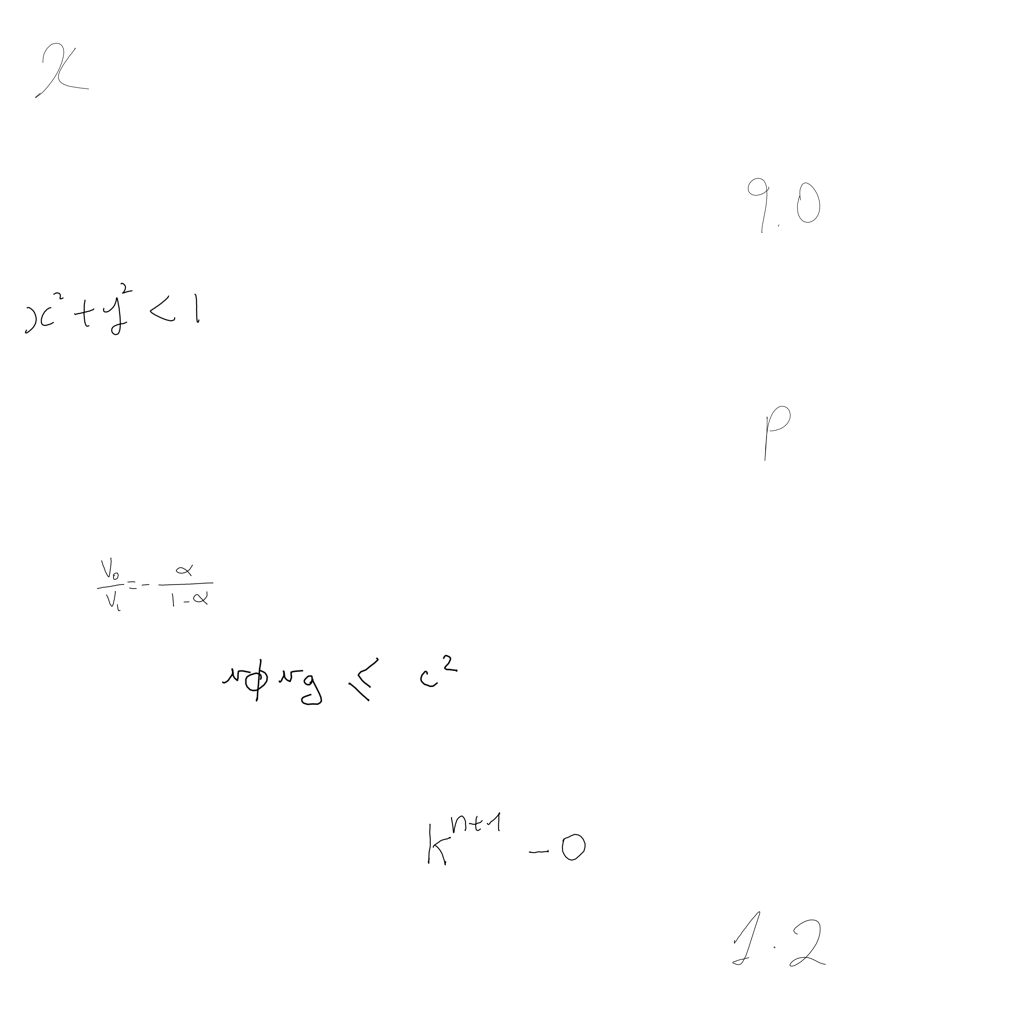 x
9.0
x² + y² < 1
p
V₀/V₁ = - α/(1-α)
vϕ vg ≤ c²
k^{n+1} - 0
1.2